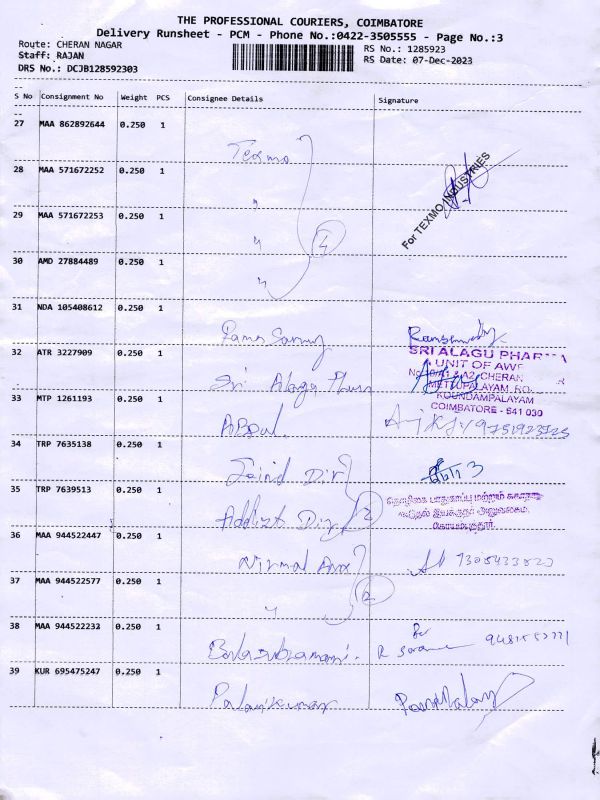 THE PROFESSIONAL COURIERS, COIMBATORE
Delivery Runsheet - PCM - Phone No.:0422-3505555 - Page No.:3
Route: CHERAN NAGAR
RS No.: 1285923
Staff: RAJAN
RS Date: 07-Dec-2023
DRS No.: DCJB128592303
S No Consignment No Weight PCS Consignee Details Signature
27 MAA 862892644 0.250 1
Texmo
28 MAA 571672252 0.250 1
For TEXMO INDUSTRIES
29 MAA 571672253 0.250 1
4
30 AMD 27884489 0.250 1
31 NDA 105408612 0.250 1
Rama Samy
32 ATR 3227909 0.250 1
SRI ALAGU PHARMA
A UNIT OF
METTUPALAYAM
KOUNDAMPALAYAM
COIMBATORE - 641 030
Sri Alagu
33 MTP 1261193 0.250 1
34 TRP 7635138 0.250 1
Joind Dir
35 TRP 7639513 0.250 1
தொழிலக பாதுகாப்பு மற்றும் சுகாதார
கூடுதல் இயக்குநர் அலுவலகம்,
கோயம்புத்தூர்.
2
36 MAA 944522447 0.250 1
Nirmal
37 MAA 944522577 0.250 1
2
38 MAA 944522232 0.250 1
Balasubramani.
39 KUR 695475247 0.250 1
Palanikumar